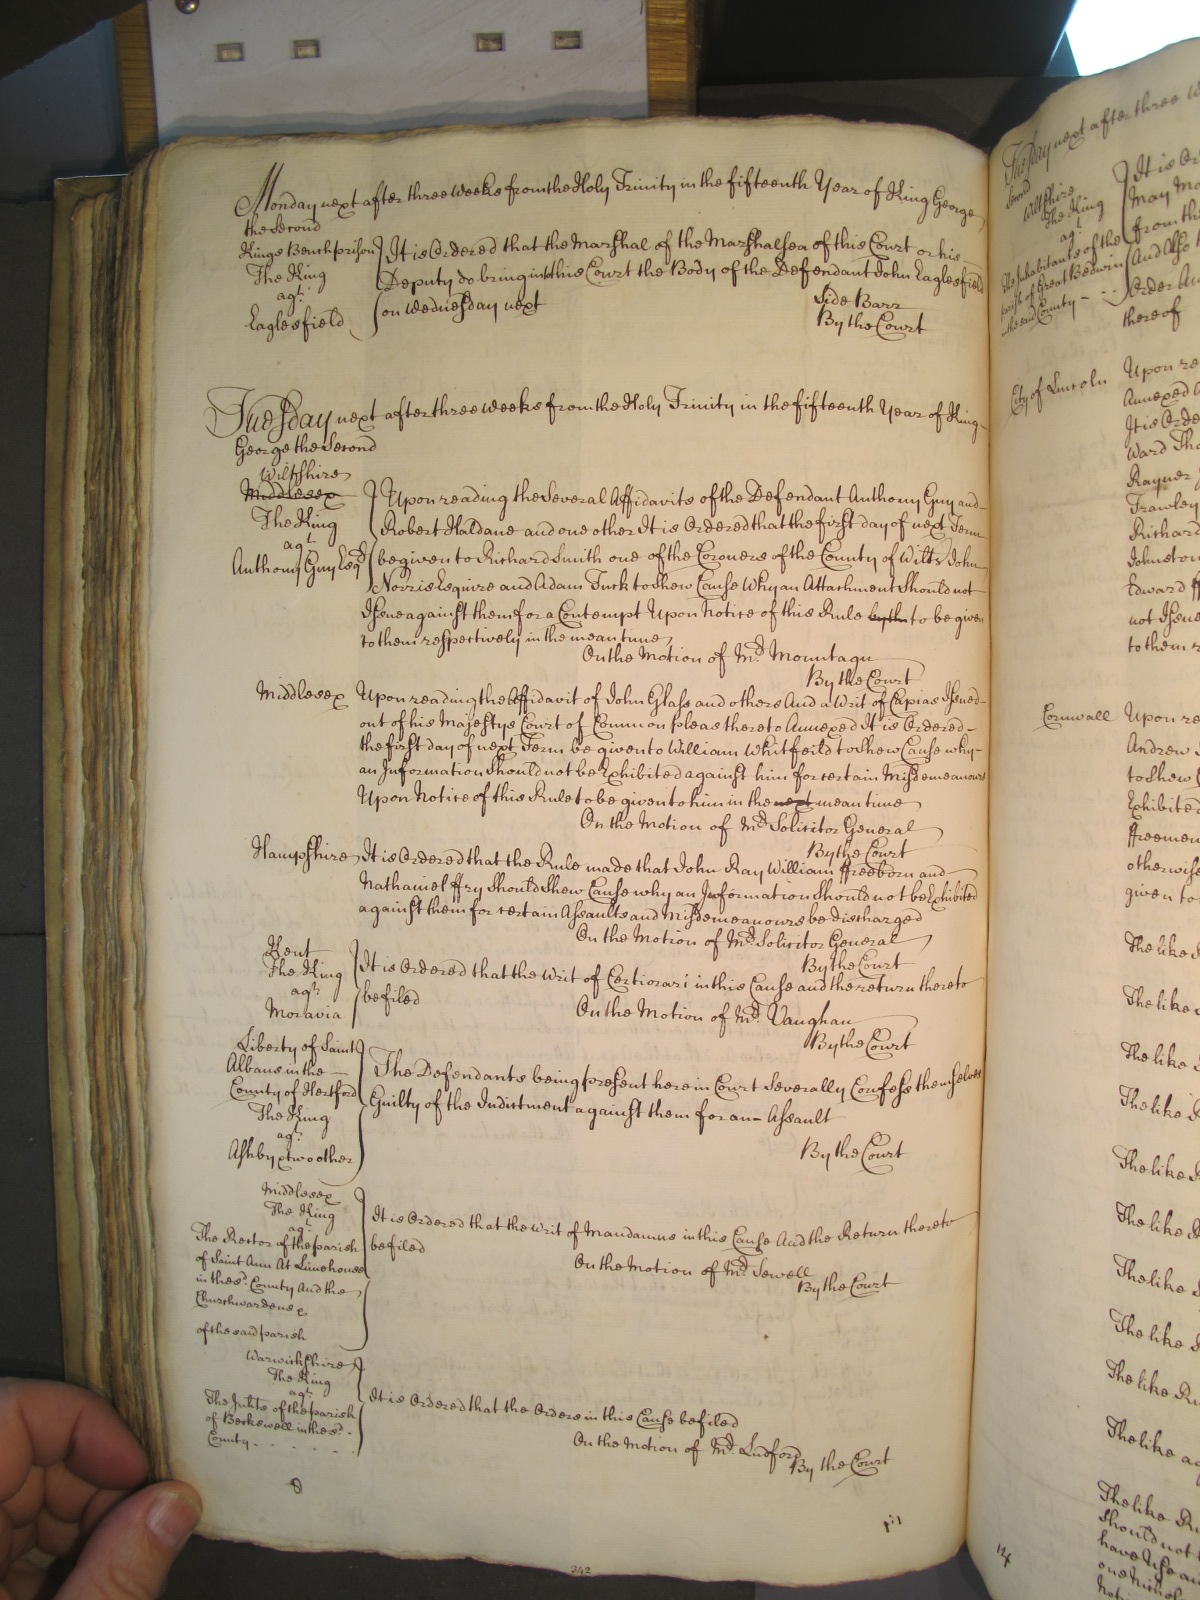 Monday next after three weeks from the Holy Trinity in the fifteenth Year of King George
the Second
Kings Bench prison
The King
agt.
Eaglesfield
It is Ordered that the Marshal of the Marshalsea of this Court or his
Deputy do bring into this Court the Body of the Defendant John Eaglesfield
on Wednesday next
Side Barr
By the Court
Tuesday next after three weeks from the Holy Trinity in the fifteenth Year of King
George the Second
Wiltshire
Middlesex
The King
agt.
Anthony Guy Esqr.
Upon reading the Several Affidavits of the Defendant Anthony Guy and
Robert Haldane and one other It is Ordered that the first day of next Term
be given to Richard Smith one of the Coroners of the County of Wilts John
Norris Esquire and Adam Tuck to shew Cause Why an Attachment Should not
Issue against them for a Contempt Upon Notice of this Rule to be given
to them respectively in the mean time
On the Motion of Mr. Mountagu
By the Court
Middlesex
Upon reading the Affidavit of John Glass and others And a Writ of Capias Issued
out of his Majestys Court of Common pleas thereto Annexed It is Ordered
the first day of next Term be given to William Whitfeild to Shew Cause why
an Information Should not be Exhibited against him for certain Misdemeanours
Upon Notice of this Rule to be given to him in the next mean time
On the Motion of Mr. Solicitor General
By the Court
Hampshire
It is Ordered that the Rule made that John Ray William ffreeborn and
Nathaniel ffry Should Shew Cause why an Information Should not be Exhibited
against them for certain Assaults and Misdemeanours be discharged
On the Motion of Mr. Solicitor General
By the Court
Kent
The King
agt.
Moravia
It is Ordered that the Writ of Certiorari in this Cause and the return thereto
be filed
On the Motion of Mr. Vaughan
By the Court
Liberty of Saint
Albans in the
County of Hertford
The King
agt.
Ashby & two other
The Defendants being present here in Court Severally Confess themselves
Guilty of the Indictment against them for an Assault
By the Court
Middlesex
The King
agt.
The Rector of the parish
of Saint Ann At Limehouse
in the sd. County And the
Churchwardens &
of the said parish
It is Ordered that the Writ of Mandamus in this Cause And the Return thereto
be filed
On the Motion of Mr. Sewell
By the Court
Warwickshire
The King
agt.
The Inhts of the parish
of Berkswell in the sd.
County
It is Ordered that the Orders in this Cause be filed
On the Motion of Mr. Ludford
By the Court
242
Tuesday next after three W
Second
Wiltshire
The King
agt.
The Inhabitants of the
parish of Great Bedwin
in the said County
It is Or
May mo
from thi
And Also
Order An
thereof
City of Lincoln
Upon re
Annexed A
It is Orde
Ward Tho
Rayner
Frawley
Richard
Johnston
Edward ff
not Issue
to them r
Cornwall
Upon re
Andrew
to Shew
Exhibited
ffreemen
otherwise
given to
The like
The like
The like
The like R
The like R
The like R
The like
The like
The like Ru
The like ag
The like Ru
Should not
have Use an
one Nichol
Noti
124